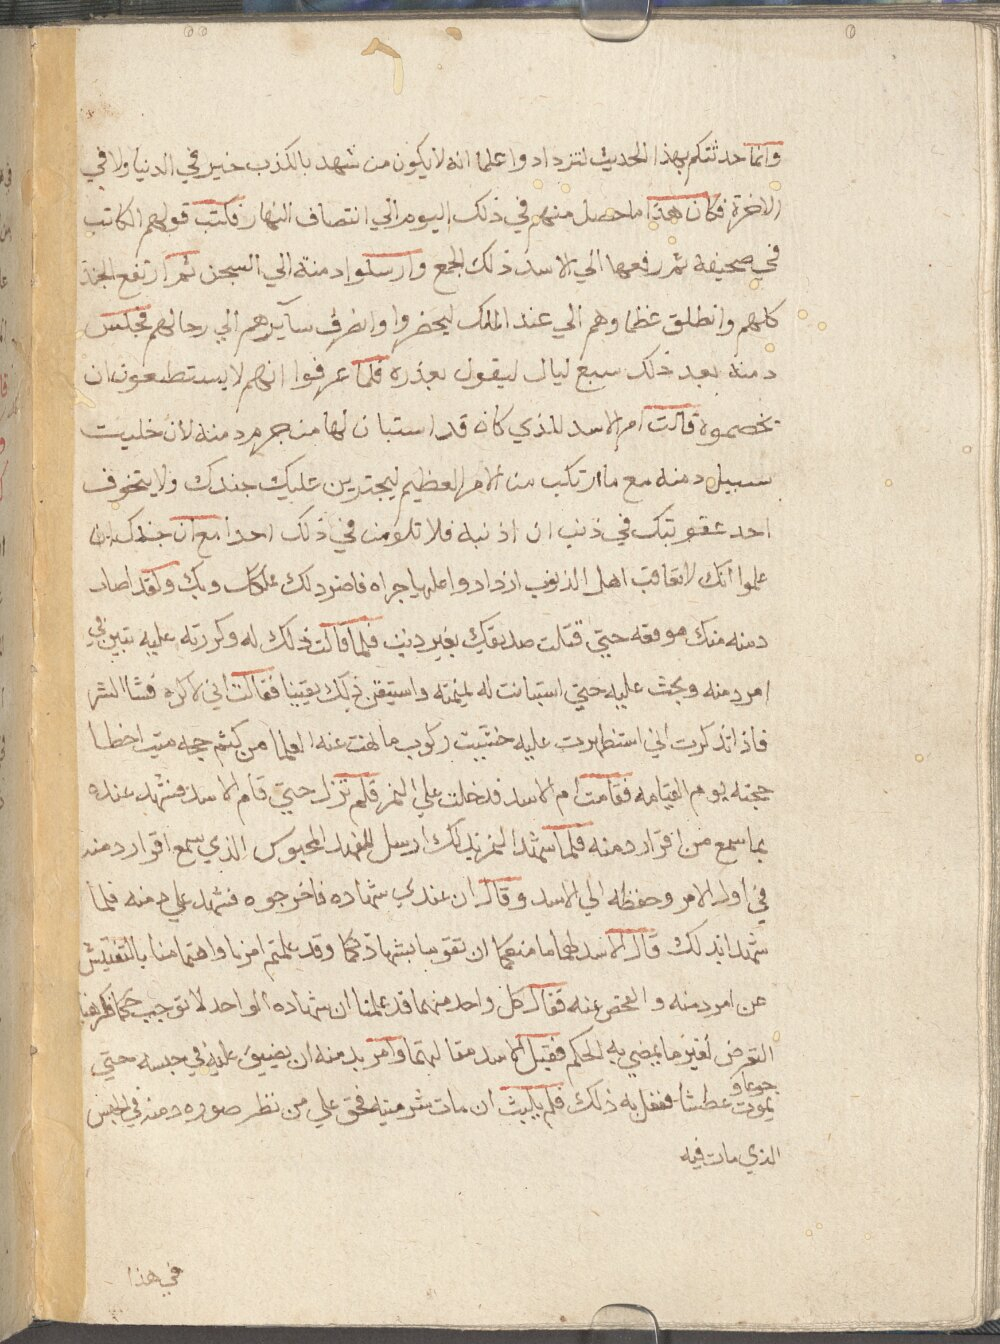 وانما حدثتكم بهذا الحديث لتزدادوا علما انه لا يكون من شهد بالكذب خير في الدنيا ولا في
الاخرة فكان هذا ما حصل منهم في ذلك اليوم الي انتصاف النهار فكتب قولهم الكاتب
في صحيفة ثم رفعها الي الاسد ذلك الجمع وارسلوا دمنة الي السجن ثم ارتفع الجند
كلهم وانطلق عظماوهم الي عند الملك ليحضروا وانصرف سآيرهم الي رحالهم فجلس
دمنه بعد ذلك سبع ليال ليقول بعذره فلما عرفوا انهم لا يستطيعون ان
يخصموه قالت ام الاسد للذي كان قد استبان لها من جرم دمنه لان خليت
سبيل دمنه مع ما ارتكب من الامر العظيم ليجترين عليك جندك ولا يتخوف
احد عقوبتك في ذنب ان اذنبه فلا تلومن في ذلك احدا مع ان جندك ان
علموا انك لا تعاقب اهل الذنوب ازدادوا عليها جراه فاضر ذلك بملكك وبك ولقد اصار
دمنه منك موقعه حتي قتلت صديقك بغير دنب فلما قالت ذلك له وكررته عليه تبين في
امر دمنه وبحث عليه حتي استبانت له نميمته واستيقن ذلك يقينا فقالت اني لاكره فشا السر
فاذا تذكرت اني استظهرت عليه خشيت ركوب ما نهت عنه العلما من كتم حجه ميت اخطا
حجته يوم القيامه فقامت ام الاسد فدخلت علي النمر فلم تزل حتي قام الاسد فشهد عنده
بما سمع من اقرار دمنه فلما شهد النمر بذلك ارسل الفهد المحبوس الذي سمع اقرار دمنه
في اول الامر وحفظه الي الاسد وقال ان عندي شهاده فاخرجوه فشهد علي دمنه فلما
شهدا بذلك قال الاسد لهما ما منعكما ان تقوما بشهادتكما وقد علمتم امرنا واهتمامنا بالتفتيش
عن امر دمنه والفحص عنه فقال كل واحد منهما قد علمنا ان شهاده الواحد لا توجب حكما فكرهنا
التعرض لغير ما يمضي به الحكم فقبل الاسد مقالتهما وامر بدمنه ان يضيق عليه في حبسه حتي
يموت جوعا و عطشا ففعل به ذلك فلم يلبث ان مات شر ميته فحق علي من نظر صوره دمنه في الحبس
الذي مات فيه
في هذا